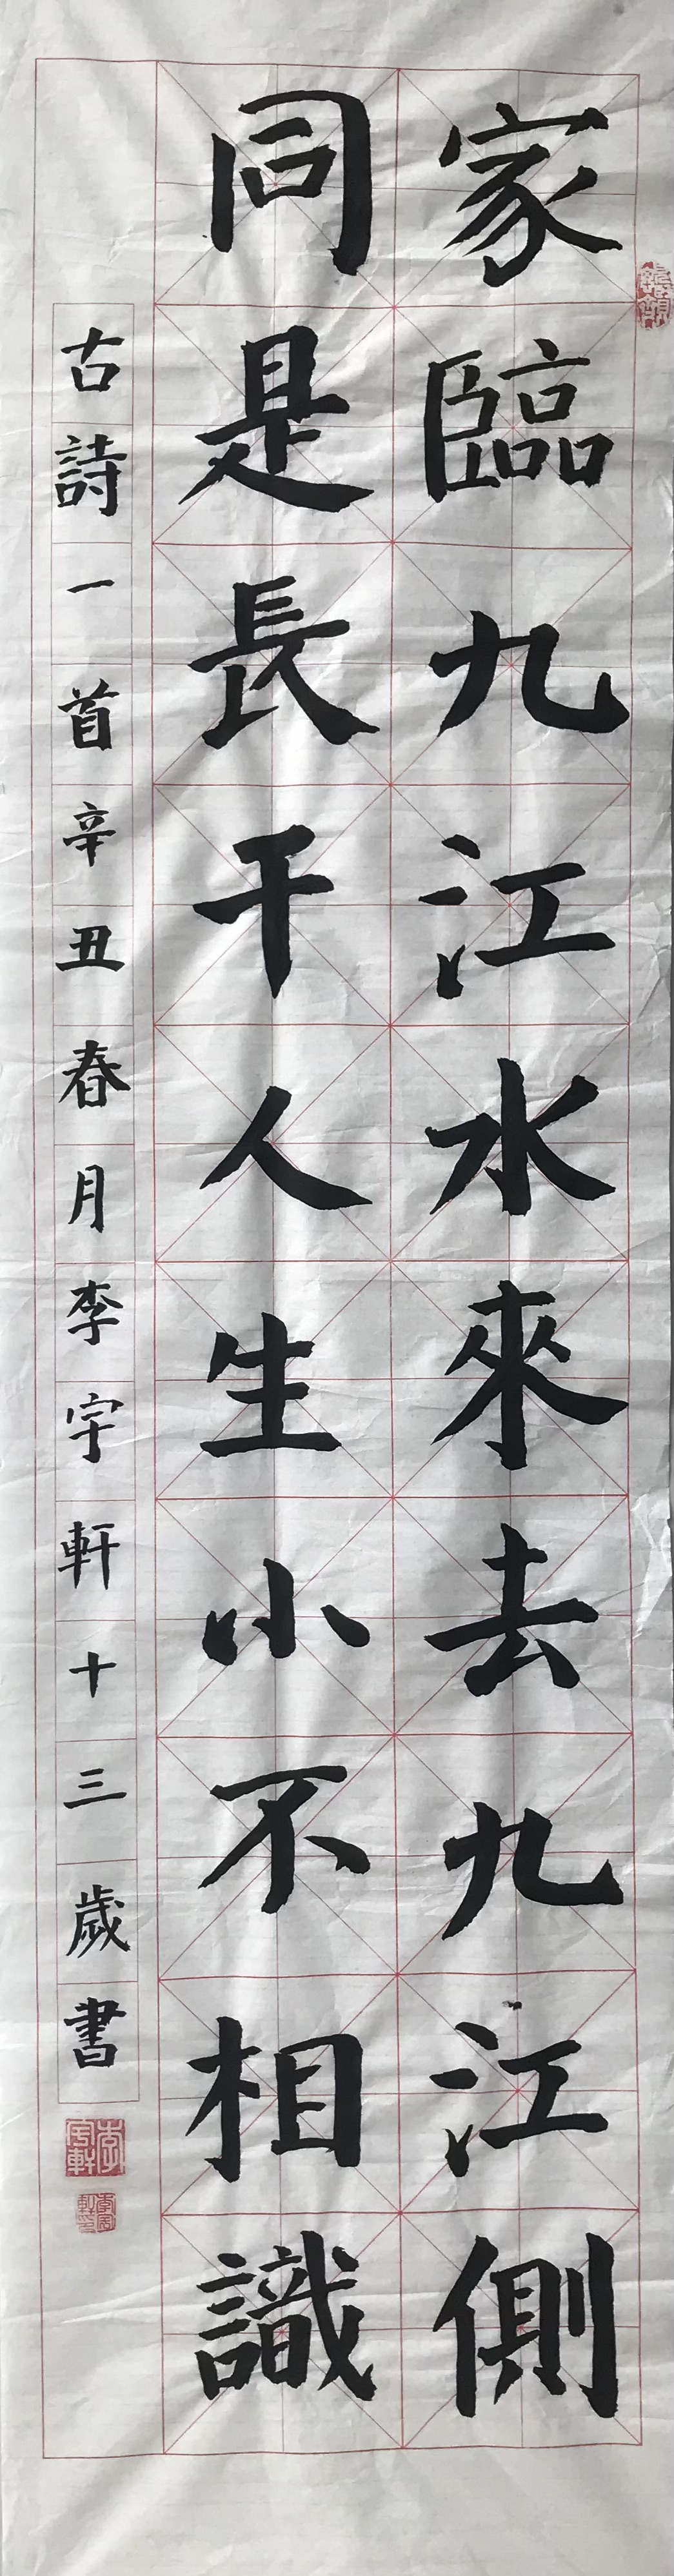 家臨九江水來去九江側
同是長干人生小不相識
古詩一首辛丑春月李宇軒十三歲書
李宇軒